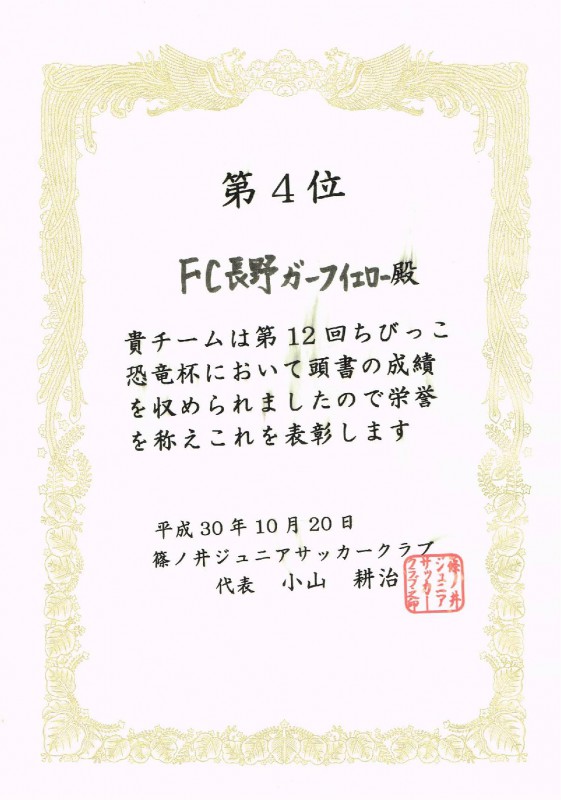 第4位
FC長野ガーフイエロー殿
貴チームは第12回ちびっこ
恐竜杯において頭書の成績
を収められましたので栄誉
を称えこれを表彰します
平成30年10月20日
篠ノ井ジュニアサッカークラブ
代表 小山 耕治
篠ノ井
ジュニア
サッカー
クラブ之印